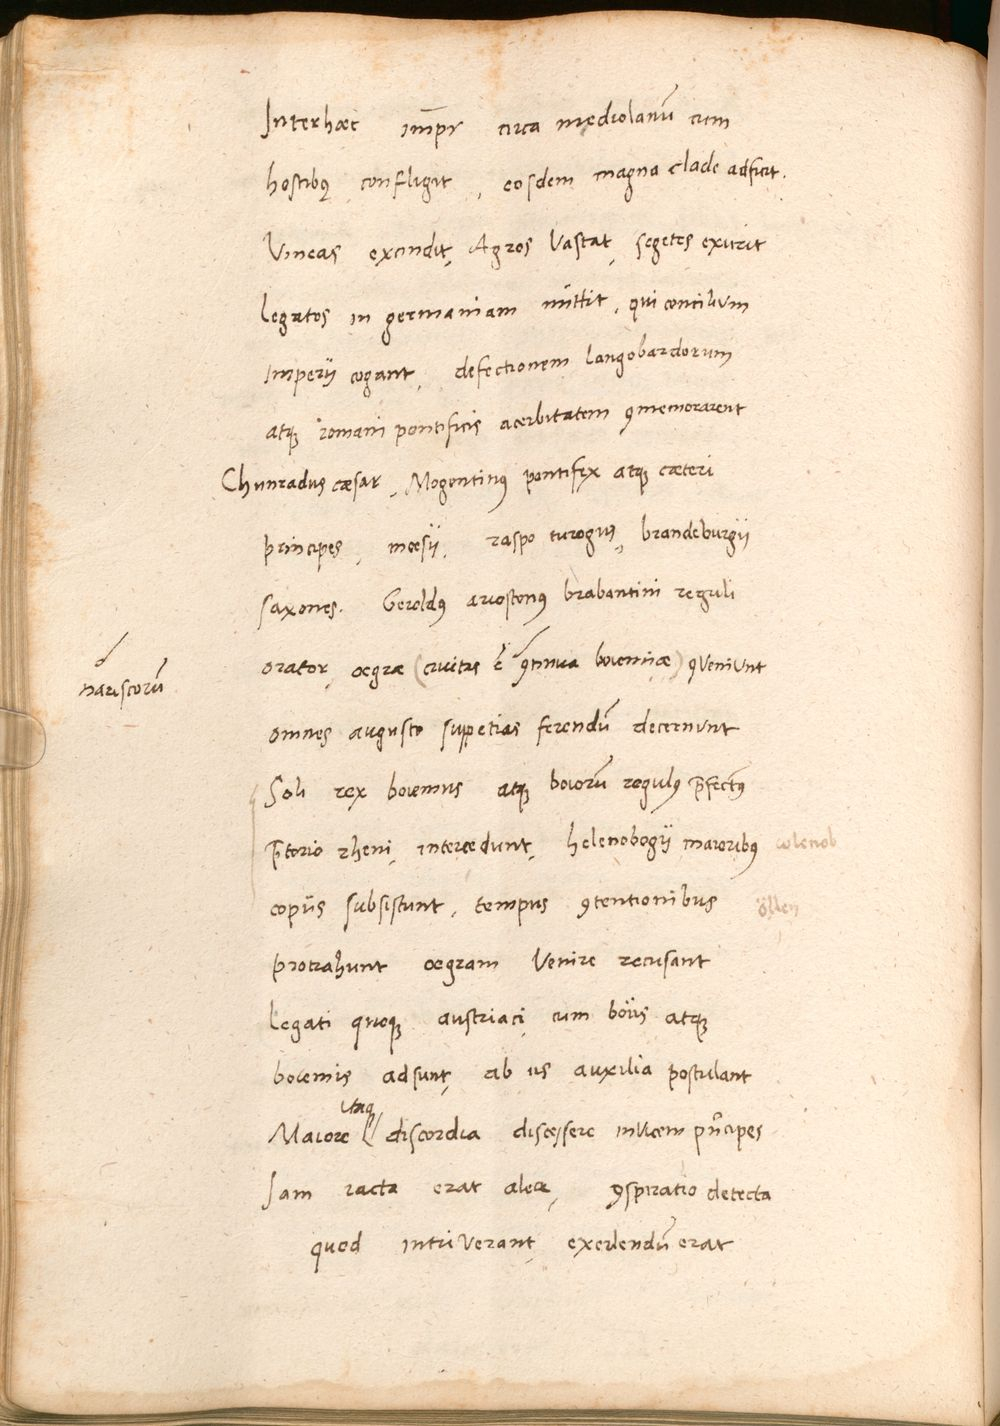 Interhæc im̅pr circa mediolanū cum
hostibꝰ confligit, eosdem magna clade adficit.
Vineas excindit, Agros Vastat, segetes exurit
legatos in germaniam mittit, qui concilium
Imperij cogant, defectionem langobardorum
atqꝫ romani pontificis acerbitatem ꝯmemorarent
Chunradus cæsar, Mogontinꝰ pontifex atqꝫ cæteri
principes, mœsij, raspo turogus, brandeburgij
saxones. Geroldꝰ ariostonꝰ brabantini reguli
orator œgræ (civitas ē ꝯtinua boiemiæ) ꝯveniunt
nariscorū
omnes augusto suppetias ferendū decernunt
Soli rex boiemus atqꝫ boiorū regulꝰ p̄fectꝰ
p̄torio rheni, intercedunt, helenobogij maioribꝰ colenob
copijs subsistunt, tempus ꝯtentionibus
protrahunt œgram Venire recusant
legati quoqꝫ austriaci cum boiis atqꝫ
boiemis adsunt, ab iis auxilia postulant
itaqꝫ
Maiore discordia discessere invicem prīcipes
Iam iacta erat alea, ꝯspiratio detecta
quod intriverant, exedendū erat